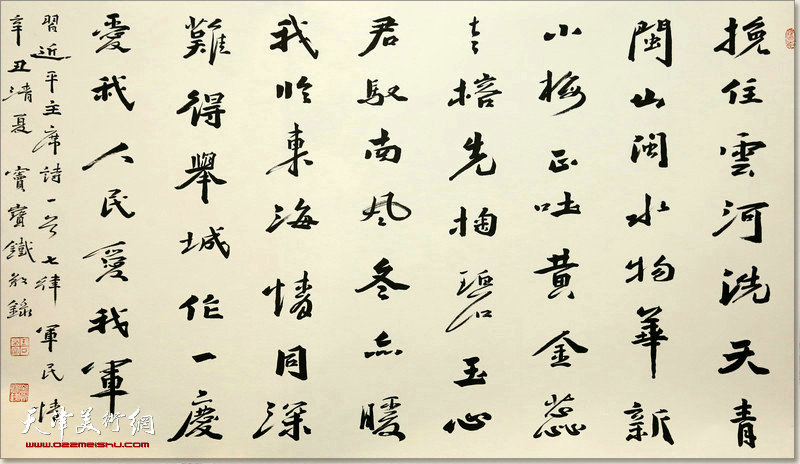 挽住雲河洗天青
閩山閩水物華新
小梅正吐黃金蕊
老榕先掬碧玉心
君馭南風冬亦暖
我臨東海情同深
難得舉城作一慶
愛我人民愛我軍
習近平主席詩一首七律 軍民情
辛丑清夏 竇寶鐵敬錄
天津美術網
www.022meishu.com